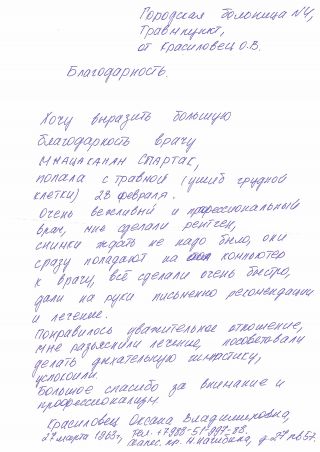 Городская больница №4,
Травмпункт,
от Красиловец О.В.
Благодарность.
Хочу выразить большую
благодарность врачу
Мнацаканян Спартак,
попала с травмой (ушиб грудной
клетки) 28 февраля.
Очень вежливый и профессиональный
врач, мне сделали рентген,
снимки ждать не надо было, они
сразу попадают на компьютер
к врачу, всё сделали очень быстро,
дали на руки письменно рекомендации
и лечение.
Понравилось уважительное отношение,
мне разъяснили лечение, посоветовали
делать дыхательную гимнастику,
успокоили.
Большое спасибо за внимание и
профессионализм.
Красиловец Оксана Владимировна,
27 марта 1963г, Тел.
пр. М.Нагибина, д.27